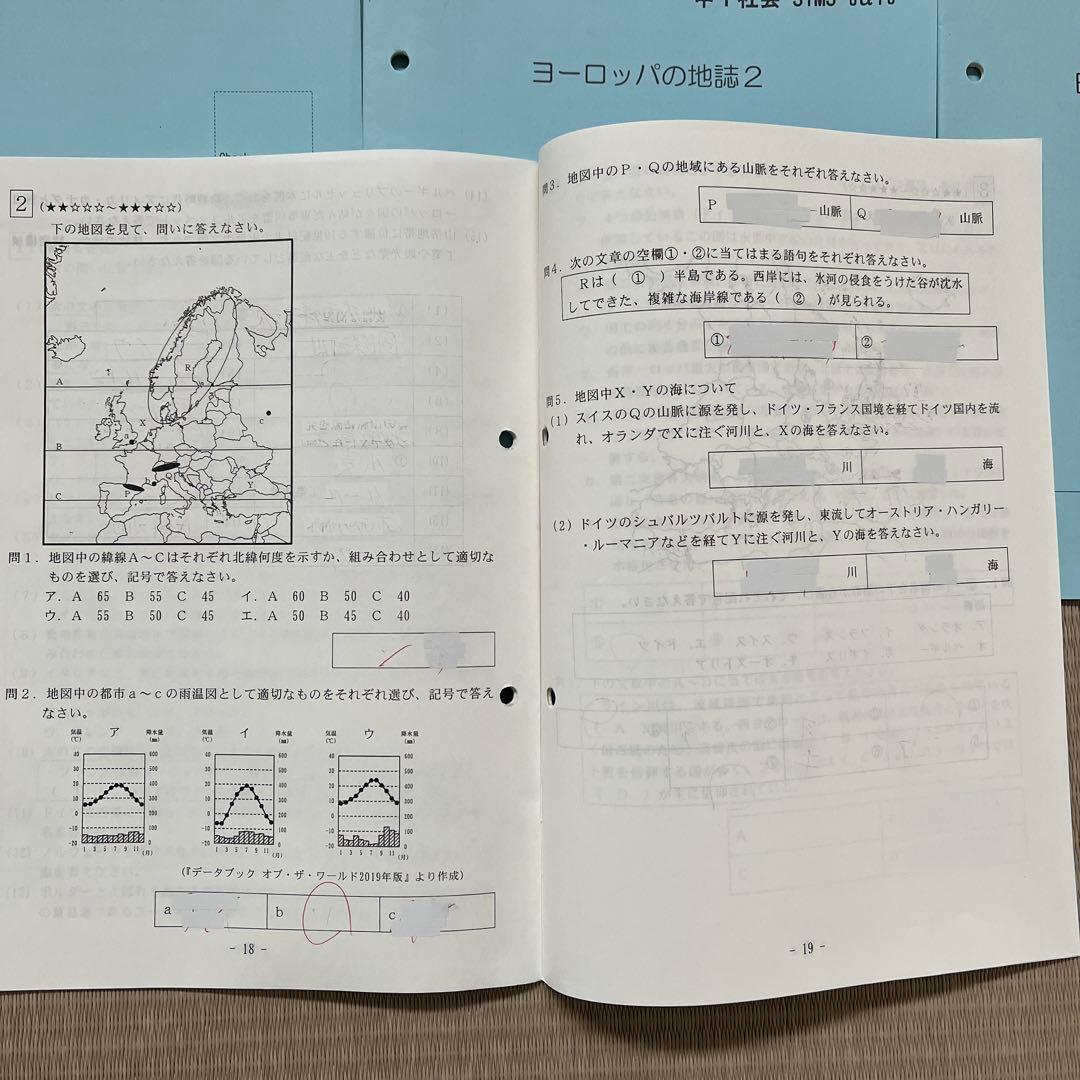 ヨーロッパの地誌2
2 (★★☆☆☆~★★★☆☆)
下の地図を見て、問いに答えなさい。
A
B
C
R
X
a
b
c
P
Q
Y
問1．地図中の緯線A～Cはそれぞれ北緯何度を示すか、組み合わせとして適切な
ものを選び、記号で答えなさい。
ア．A 65 B 55 C 45 イ．A 60 B 50 C 40
ウ．A 55 B 50 C 45 エ．A 50 B 45 C 40
問2．地図中の都市a～cの雨温図として適切なものをそれぞれ選び、記号で答え
なさい。
気温(℃) ア 降水量(㎜) イ 降水量(㎜) 気温(℃) ウ 降水量(㎜)
40 600 40 600 40 600
30 500 30 500 30 500
20 400 20 400 20 400
10 300 10 300 10 300
0 200 0 200 0 200
-10 100 -10 100 -10 100
-20 0 -20 0 -20 0
1 3 5 7 9 11 (月) 1 3 5 7 9 11 (月) 1 3 5 7 9 11 (月)
(『データブック オブ・ザ・ワールド2019年版』より作成)
a b c
- 18 -
問3．地図中のP・Qの地域にある山脈をそれぞれ答えなさい。
P 山脈 Q 山脈
問4．次の文章の空欄①・②に当てはまる語句をそれぞれ答えなさい。
Rは（ ① ）半島である。西岸には、氷河の侵食をうけた谷が沈水
してできた、複雑な海岸線である（ ② ）が見られる。
① ②
問5．地図中X・Yの海について
(1) スイスのQの山脈に源を発し、ドイツ・フランス国境を経てドイツ国内を流
れ、オランダでXに注ぐ河川と、Xの海を答えなさい。
川 海
(2) ドイツのシュバルツバルトに源を発し、東流してオーストリア・ハンガリー
・ルーマニアなどを経てYに注ぐ河川と、Yの海を答えなさい。
川 海
- 19 -